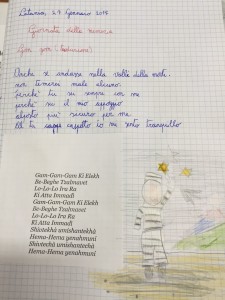 Catania, 27 Gennaio 2016
Giornata della memoria
Gam gam (traduzione)
Anche se andassi nella valle della morte
non temerei male alcuno,
perché tu sei sempre con me
perché sei il mio appoggio
più sicuro per me.
io mi sento tranquillo
Gam-Gam-Gam Ki Elekh
Be-Beghe Tzalmavet
Lo-Lo-Lo Ira Ra
Ki Atta Immadì
Gam-Gam-Gam Ki Elekh
Be-Beghe Tzalmavet
Lo-Lo-Lo Ira Ra
Ki Atta Immadì
Shivtekhà umishantekhà
Hema-Hema yenahmuni
Shivtekhà umishantekhà
Hema-Hema yenahmuni